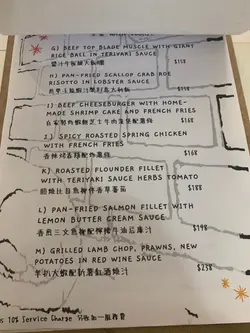 G) BEEF TOP BLADE MUSCLE WITH GIANT
RICE BALL IN TERIYAKI SAUCE
$158
H) PAN-FRIED SCALLOP CRAB ROE
RISOTTO IN LOBSTER SAUCE
$168
I) BEEF CHEESEBURGER WITH HOME-
MADE SHRIMP CAKE AND FRENCH FRIES
$168
J) SPICY ROASTED SPRING CHICKEN
WITH FRENCH FRIES
香辣烤春雞配炸薯條
$168
K) ROASTED FLOUNDER FILLET
WITH TERIYAKI SAUCE HERBS TOMATO
$188
L) PAN-FRIED SALMON FILLET WITH
LEMON BUTTER CREAM SAUCE
香煎三文魚柳配檸檬牛油忌廉汁
$198
M) GRILLED LAMB CHOP, PRAWNS, NEW
POTATOES IN RED WINE SAUCE
羊扒大蝦配新薯紅酒燒汁
$238
10% Service Charge 另收加一服務費